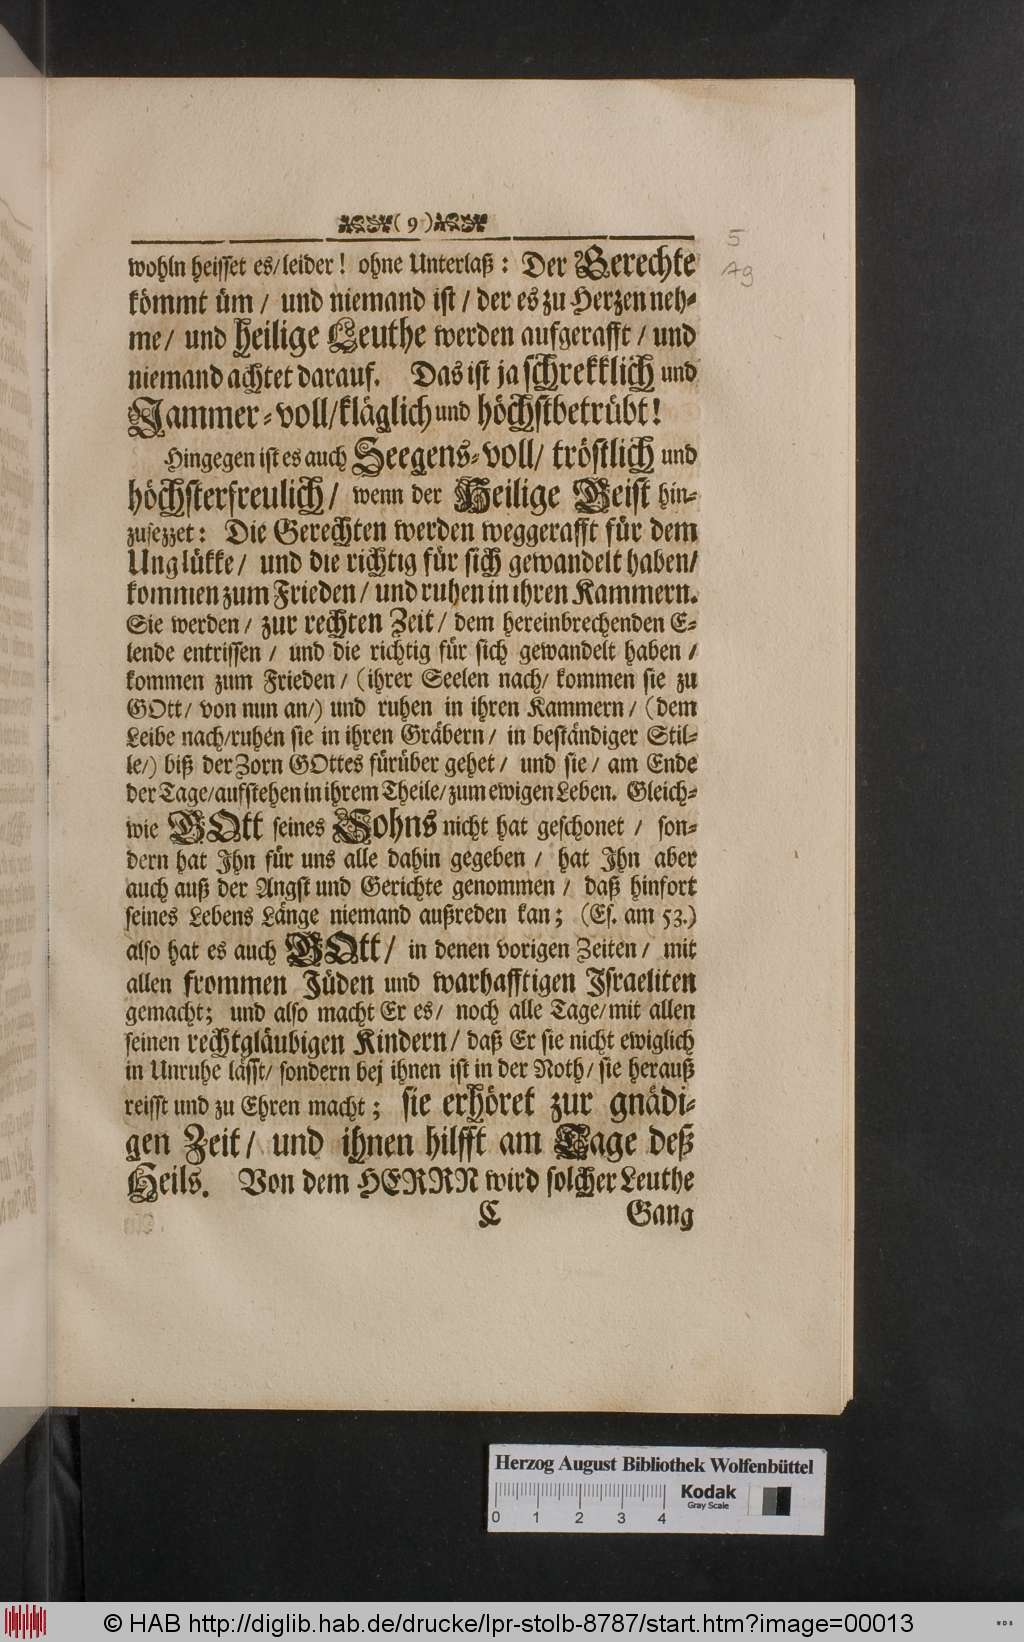 ( 9 )
5
A9
wohln heisset es/ leider! ohne Unterlaß: Der Gerechte
kömmt üm / und niemand ist / der es zu Herzen neh-
me/ und heilige Leuthe werden aufgerafft / und
niemand achtet darauf. Das ist ja schrekklich und
Jammer-voll/ kläglich und höchstbetrübt!
Hingegen ist es auch Seegens-voll/ tröstlich und
höchsterfreulich/ wenn der Heilige Geist hin-
zusezzet: Die Gerechten werden weggerafft für dem
Unglükke/ und die richtig für sich gewandelt haben/
kommen zum Frieden/ und ruhen in ihren Kammern.
Sie werden/ zur rechten Zeit/ dem hereinbrechenden E-
lende entrissen / und die richtig für sich gewandelt haben /
kommen zum Frieden/ (ihrer Seelen nach/ kommen sie zu
GOtt/ von nun an/) und ruhen in ihren Kammern/ (dem
Leibe nach/ ruhen sie in ihren Gräbern/ in beständiger Stil-
le/) biß der Zorn GOttes fürüber gehet / und sie / am Ende
der Tage/ aufstehen in ihrem Theile/ zum ewigen Leben. Gleich-
wie GOtt seines Sohns nicht hat geschonet / son-
dern hat Ihn für uns alle dahin gegeben / hat Ihn aber
auch auß der Angst und Gerichte genommen / daß hinfort
seines Lebens Länge niemand außreden kan; (Es. am 53.)
also hat es auch GOtt/ in denen vorigen Zeiten/ mit
allen frommen Jüden und warhafftigen Israeliten
gemacht; und also macht Er es/ noch alle Tage/ mit allen
seinen rechtgläubigen Kindern/ daß Er sie nicht ewiglich
in Unruhe lässt/ sondern bej ihnen ist in der Noth/ sie herauß
reisst und zu Ehren macht; sie erhöret zur gnädi-
gen Zeit/ und ihnen hilfft am Tage deß
Heils. Von dem HERRN wird solcher Leuthe
C Gang
Herzog August Bibliothek Wolfenbüttel
Kodak
Gray Scale
0 1 2 3 4
© HAB http://diglib.hab.de/drucke/lpr-stolb-8787/start.htm?image=00013